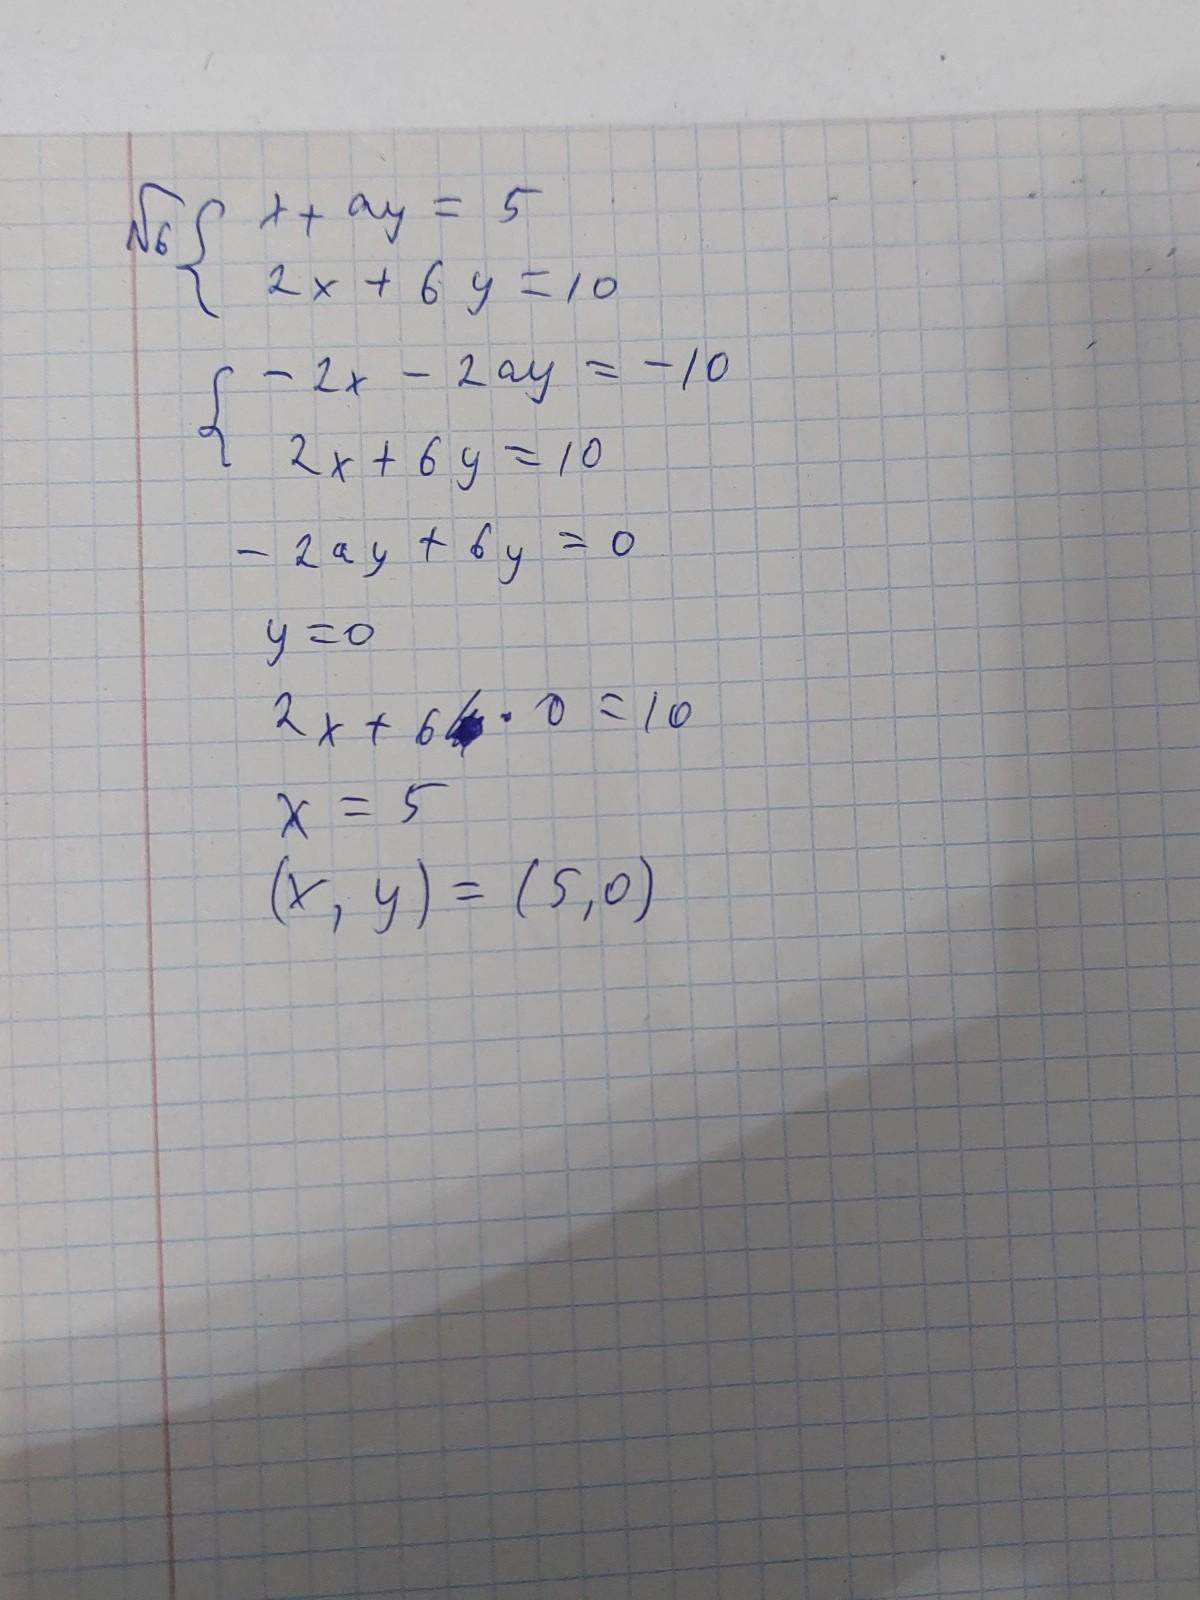 №6 { x + ay = 5
2x + 6y = 10
{ -2x - 2ay = -10
2x + 6y = 10
- 2ay + 6y = 0
y = 0
2x + 6 · 0 = 10
x = 5
(x, y) = (5,0)